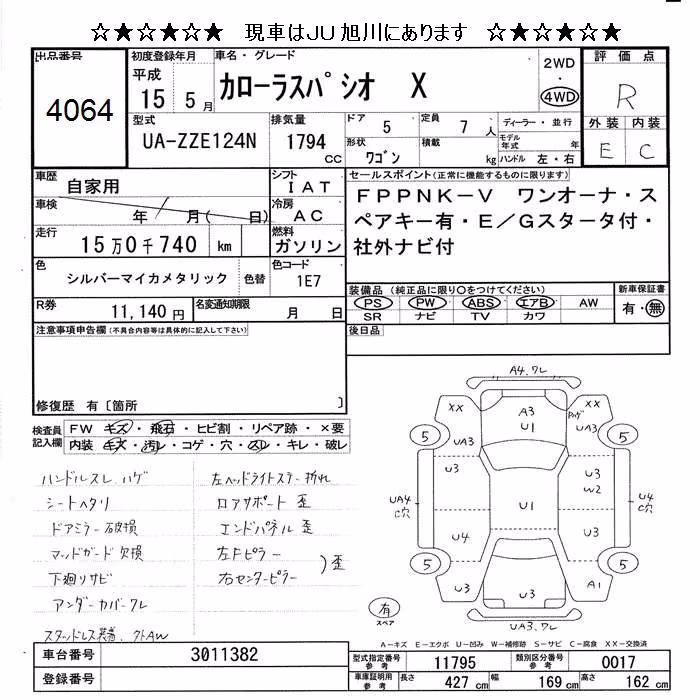 ☆★☆★☆★ 現車はJU旭川にあります ☆★☆★☆★
出品番号
4064
初度登録年月
平成
15 5月
車名・グレード
カローラスパシオ X
2WD
・
4WD
評価点
R
外装 内装
E C
型式
UA-ZZE124N
排気量
1794
cc
ドア 5
定員 7人
形状 ワゴン
積載 kg
ディーラー・並行
モデル年式 年
ハンドル 左・右
車歴 自家用
シフト IAT
車検 年 月( 日)
冷房 AC
走行 15万0千740 km
燃料 ガソリン
色 シルバーマイカメタリック 色替
色コード 1E7
R券 11,140円
名変通知期限 月 日
セールスポイント(正常に機能するものに限ります)
FPPNK-V ワンオーナ・ス
ペアキー有・E/Gスタータ付・
社外ナビ付
装備品(純正品に限り○をつけてください)
PS PW ABS エアB AW
SR ナビ TV カワ
新車保証書
有・無
後日品
注意事項申告欄(不具合内容等は具体的に記入して下さい)
修復歴 有〔箇所 〕
検査員
記入欄
FW キズ・飛石・ヒビ割・リペア跡・×要
内装 キズ・汚レ・コゲ・穴・スレ・キレ・破レ
ハンドルスレ、ハゲ
シートヘタリ
ドアミラー破損
マッドガード欠損
下廻りサビ
アンダーカバーワレ
スタッドレス装着、外AW
左ヘッドライトステー折れ
ロアサポート 歪
エンドパネル 歪
左Fピラー
右センターピラー
)歪
A4、ワレ
XX
A3
U1
XX
UA3
UA3
5
5
U3
U3
W2
UA4
C穴
U1
U4
C穴
U4
U3
5
5
U3
U3
A1
UA3、ワレ
有
スペア
A-キズ E-エクボ U-凹み W-補修跡 S-サビ C-腐食 XX-交換済
車台番号 3011382
登録番号
型式指定番号
参考
11795
類別区分番号
参考
0017
車庫証明用
参考
長さ 427cm 幅 169cm 高さ 162cm